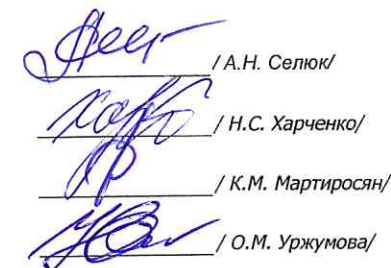 / А.Н. Селюк/
/ Н.С. Харченко/
/ К.М. Мартиросян/
/ О.М. Уржумова/